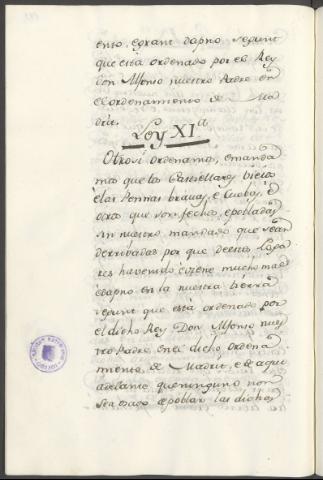 ento, egrant dapno segunt
que está ordenado por el Rey
don Alfonso nuestro Padre en
el ordenamiento de Ma
drit.
Ley XI.a
Otrosi ordenamos, emanda
mos que los Castellares viejos
é las Peñnas bravas, e Cuebas é
otras que son fechas, e pobladas
sin nuestro mandado que sean
derribadas por que de estos logа
res ha venido é viene mucho mal
edapno en la nuestra tierra
segunt que está ordenado por
el dicho Rey Don Alfonso nues
tro Padre en el dicho ordena
miento de Madrit, e de aqui
adelante que ninguno non
sea osado de poblar las dichas